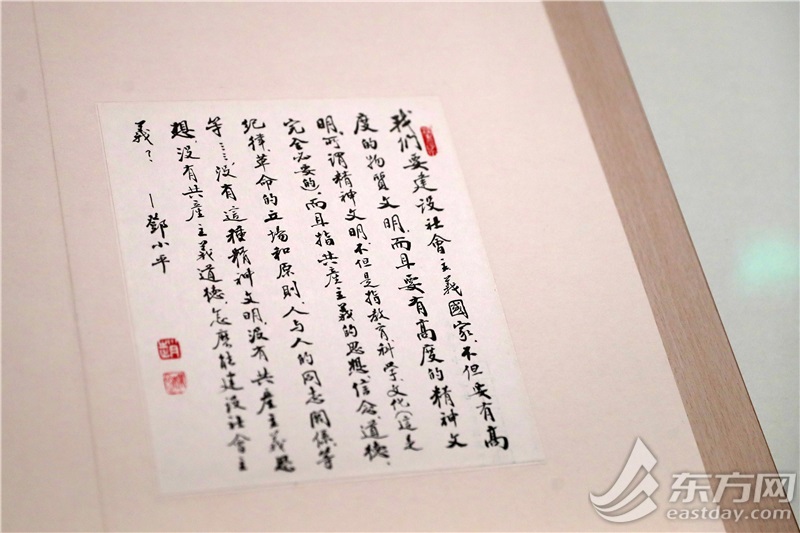 我們要建設社會主義國家，不但要有高
度的物質文明，而且要有高度的精神文
明。可謂精神文明，不但是指教育科學文化（這是
完全必要的），而且指共產主義的思想、信念、道德、
紀律，革命的立場和原則，人与人的同志関係等
等……沒有這種精神文明，沒有共產主義思
想，沒有共產主義道德，怎麼能建設社會主
義？
—鄧小平
东方网
eastday.com